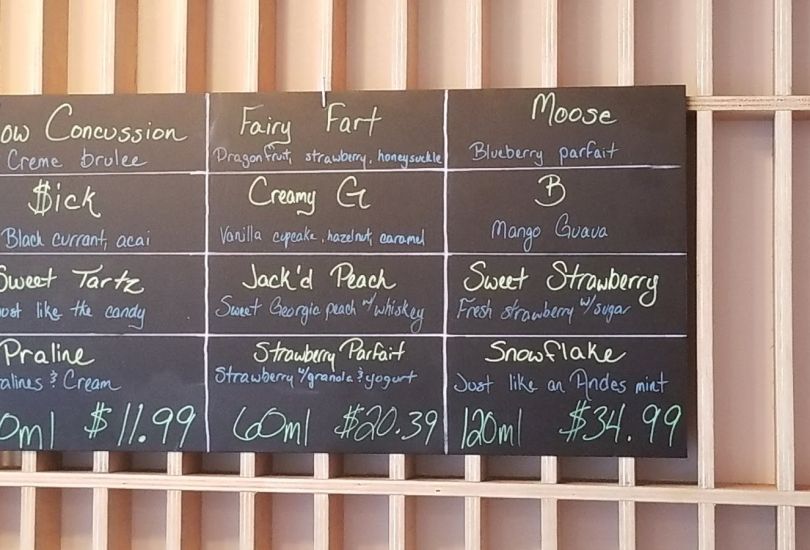 ow Concussion
Creme brulee
Fairy Fart
Dragonfruit, strawberry, honeysuckle
Moose
Blueberry parfait
$ick
Black currant, acai
Creamy G
Vanilla cupcake, hazelnut, caramel
B
Mango Guava
Sweet Tartz
ust like the candy
Jack'd Peach
Sweet Georgia peach w/whiskey
Sweet Strawberry
Fresh strawberry w/sugar
Praline
alines & Cream
Strawberry Parfait
Strawberry w/granola & yogurt
Snowflake
Just like an Andes mint
0ml $11.99
60ml $20.39
120ml $34.99